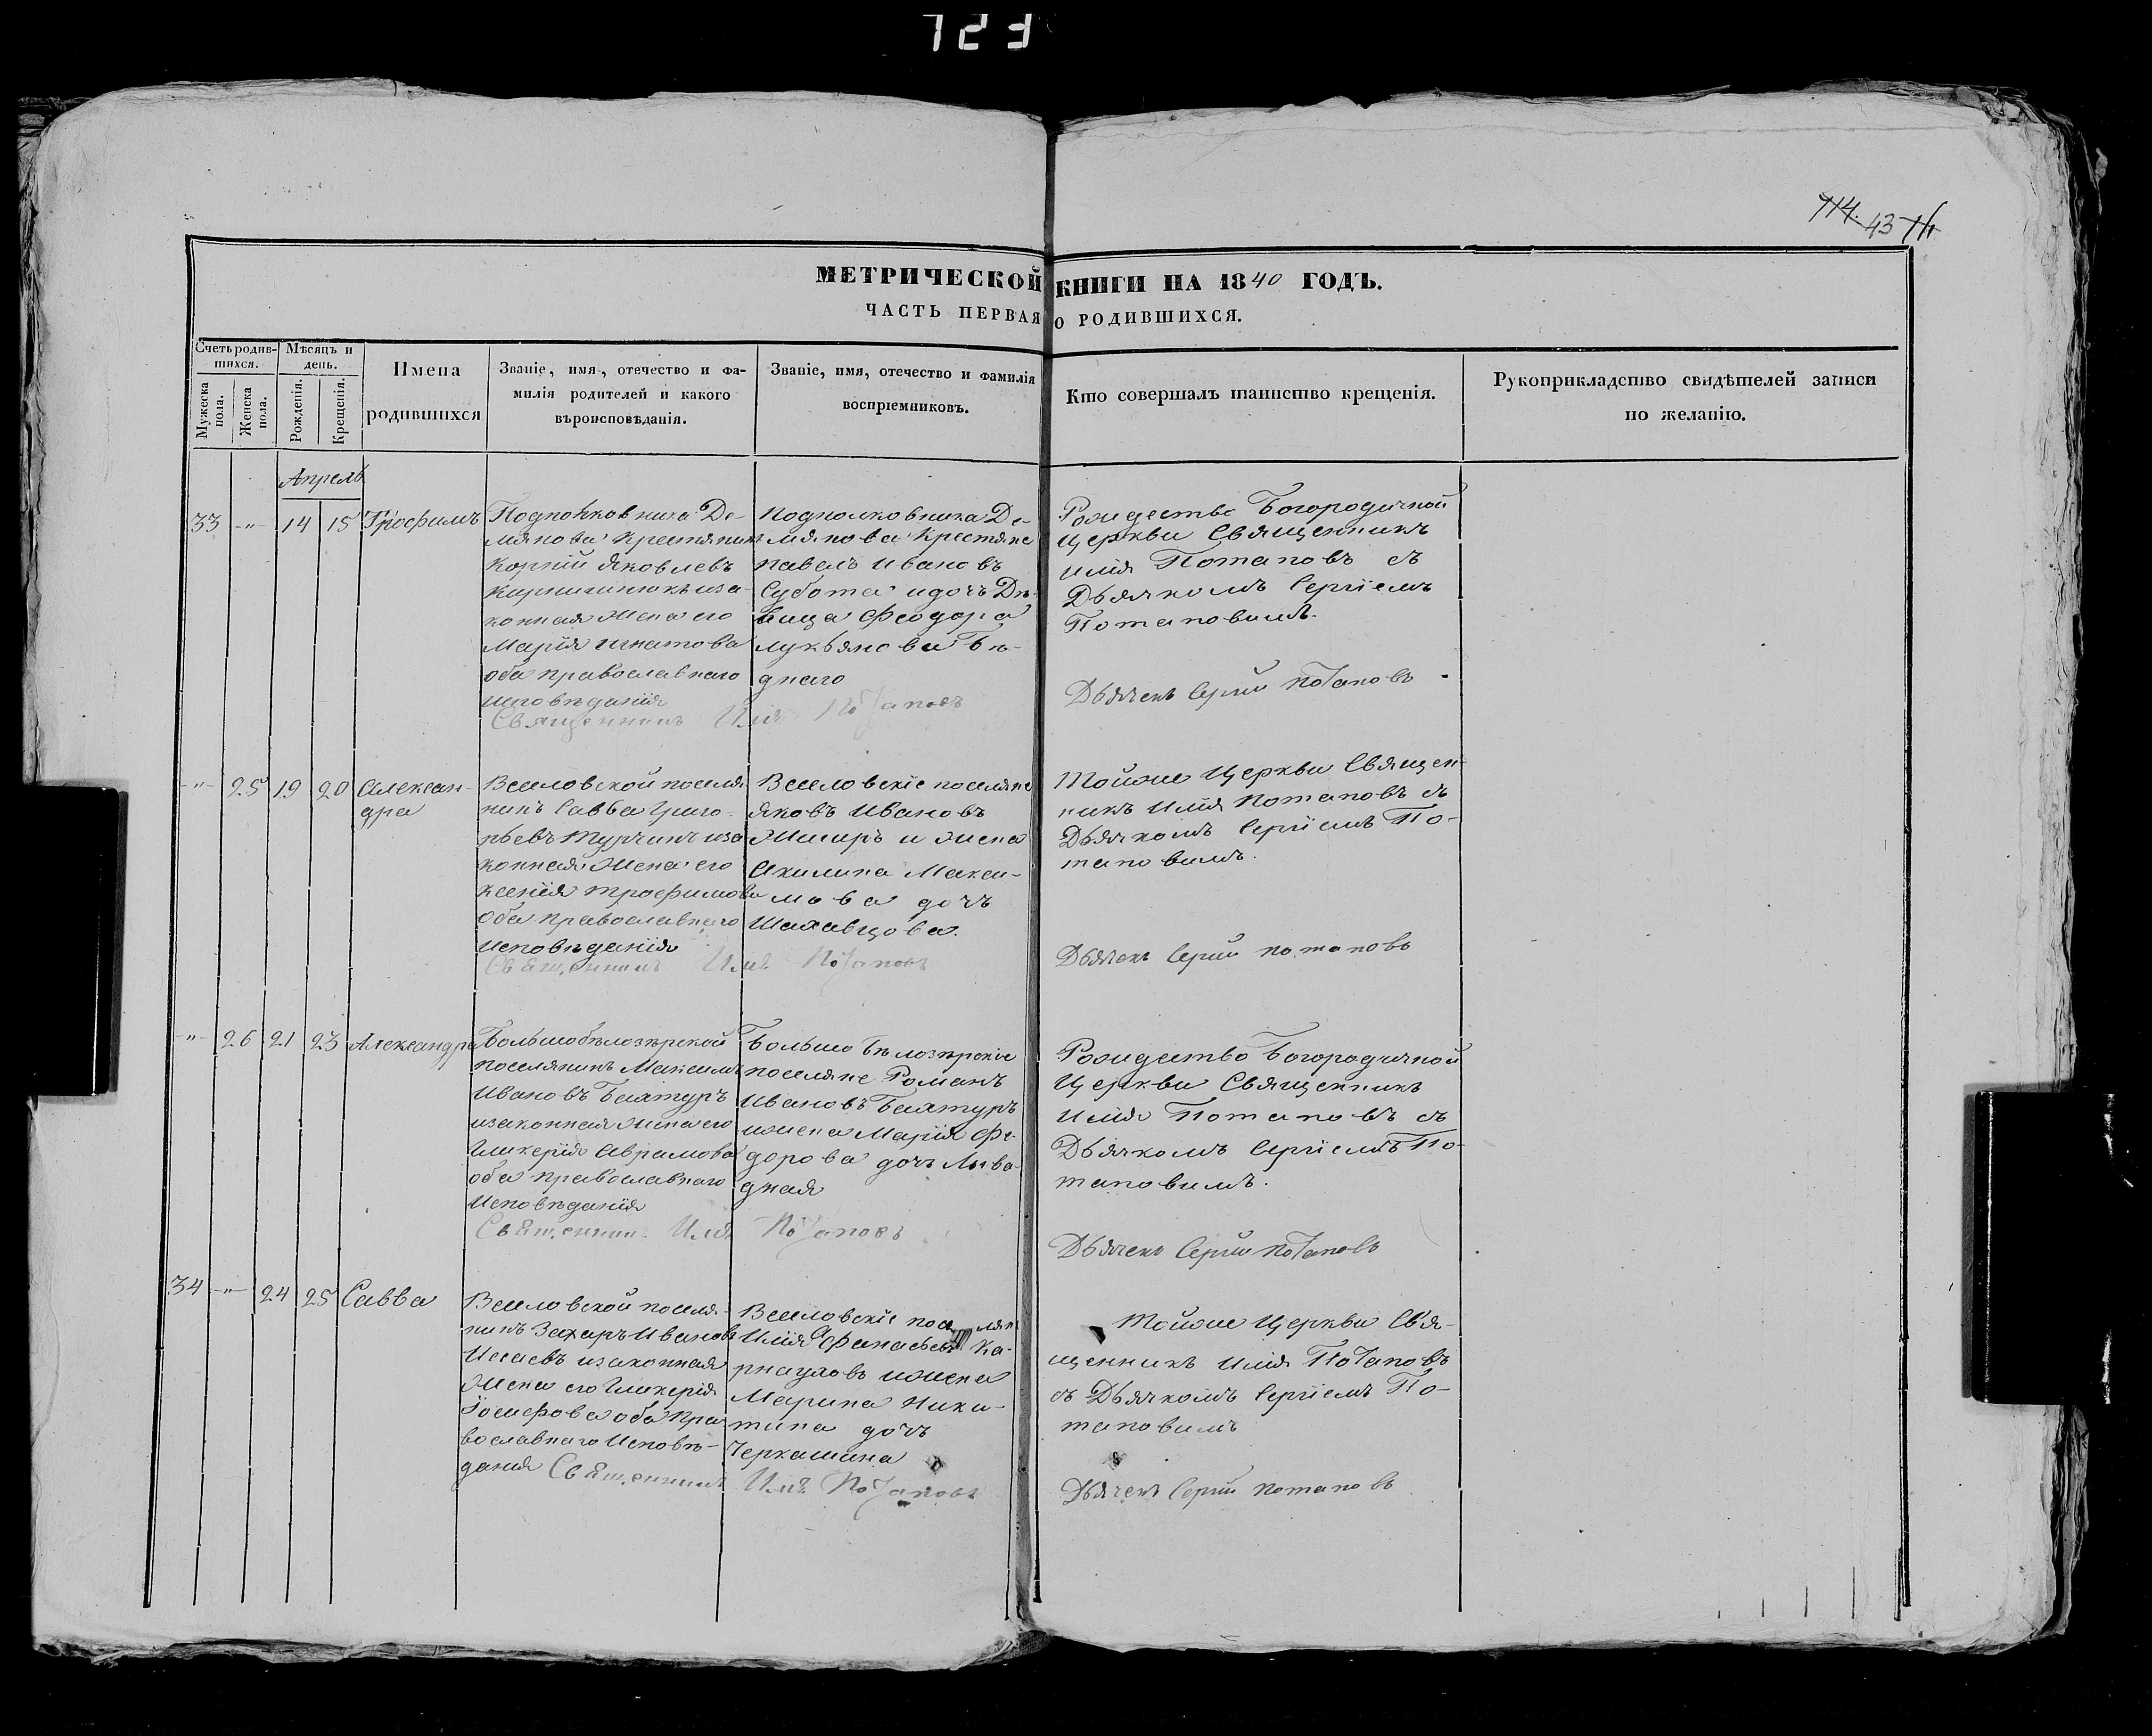 723
714. 43
МЕТРИЧЕСКОЙ КНИГИ НА 1840 ГОДЪ.
ЧАСТЬ ПЕРВАЯ О РОДИВШИХСЯ.
Счетъ родившихся.
Мужеска пола.
Женска пола.
Мѣсяцъ и день.
Рожденія.
Крещенія.
Имена родившихся
Званіе, имя, отечество и фамилія родителей и какого вѣроисповѣданія.
Званіе, имя, отечество и фамилія воспріемниковъ.
Кто совершалъ таинство крещенія.
Рукоприкладство свидѣтелей записи по желанію.
Апрель
33 -"- 14 15 Трофимъ
Подполковника Де-
мянова Крестянинъ
Корнiй Яковлевъ
иза-
конная Жена его
Марія Игнатова
оба православнаго
исповѣданія
Подполковника Де-
мянова Крестяне
павелъ Ивановъ
Субота идочъ Дѣ-
вица Феодора
лукьянова Бѣ-
днаго
Священникъ Илія Потаповъ
Рождество Богородичной
Церкви Священникъ
Илія Потаповъ съ
Дьячкомъ Сергіемъ
Потаповимъ.
Дьячекъ Сергій Потаповъ
-"- 25 19 20 Алексан-
дра
Веселовской поселя-
нинъ Савва Григо-
рьевъ Турчинъ иза
конная Жена его
Ксенія трофимова
Оба православнаго
Исповѣданія
Веселовскіе поселяне
Яковъ Ивановъ
и жена
Акилина Макси-
мова дочъ
Шахавцова.
Священникъ Илія Потаповъ
Тойже Церкви Священ-
никъ Илія Потаповъ съ
Дьячкомъ Сергіемъ По-
таповимъ.
Дьячекъ Сергій потаповъ
-"- 26 21 23 Александра
Большобѣлозѣрской
поселянинъ Максимъ
Ивановъ Баятуръ
изаконная Жена его
Гликерія Аврамова
оба православнаго
Исповѣданія
Большо Бѣлозѣрскіе
поселяне Романъ
Ивановъ Баятуръ
ижена Марія Фе-
дорова дочъ Лива-
дная
Священникъ Илія Потаповъ
Рождество Богородичной
Церкви Священникъ
Илія Потаповъ съ
Дьячкомъ Сергіемъ По-
таповимъ.
Дьячекъ Сергій Потаповъ
34 -"- 24 25 Савва
Веселовской поселя-
нинъ Захаръ Ивановъ
Исаевъ изаконная
Жена его Гликерія
Іосифова оба Пра
вославнаго Исповѣ-
данія
Веселовскіе поселян
Илія Афанасьевъ Ка-
рнауховъ ижена
Марина Ники-
тина дочъ
Черкашина
Священникъ Илія Потаповъ
Тойже Церкви Свя-
щенникъ Илія Потаповъ
съ Дьячкомъ Сергіемъ По-
таповимъ
Дьячекъ Сергій потаповъ